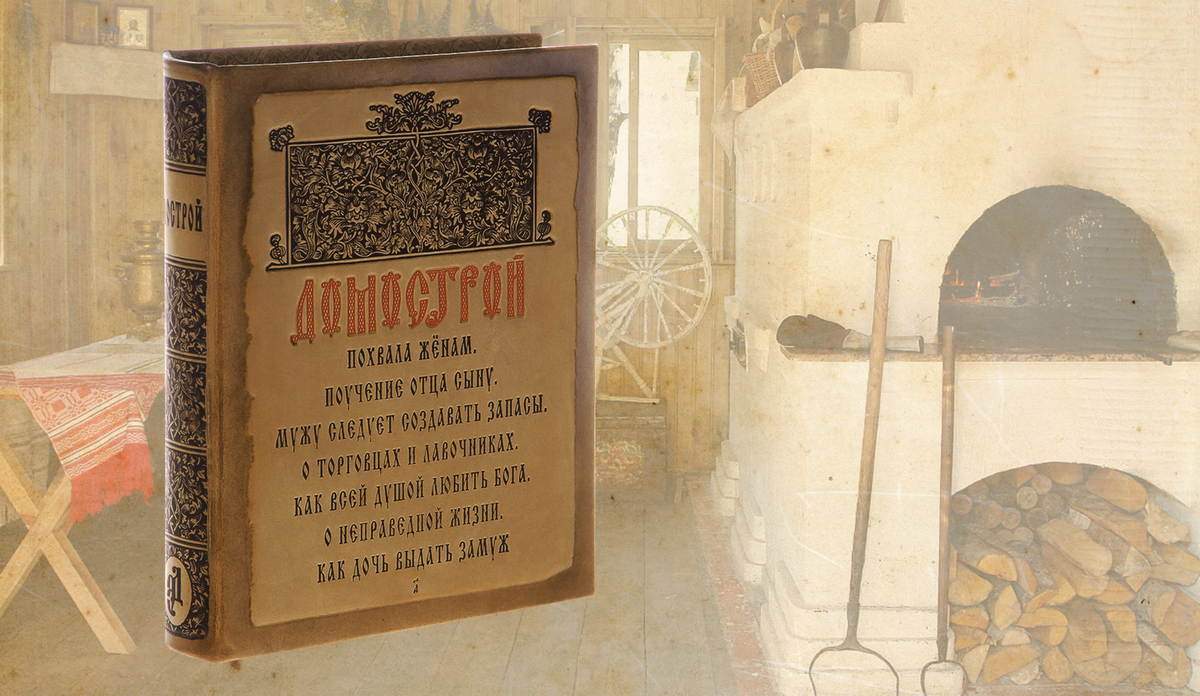 ДОМОСТРОЙ
ПОХВАЛА ЖЁНАМ.
ПОУЧЕНИЕ ОТЦА СЫНУ.
МУЖУ СЛЕДУЕТ СОЗДАВАТЬ ЗАПАСЫ.
О ТОРГОВЦАХ И ЛАВОЧНИКАХ.
КАК ВСЕЙ ДУШОЙ ЛЮБИТЬ БОГА.
О НЕПРАВЕДНОЙ ЖИЗНИ.
КАК ДОЧЬ ВЫДАТЬ ЗАМУЖ
ОСТРОЙ
Д